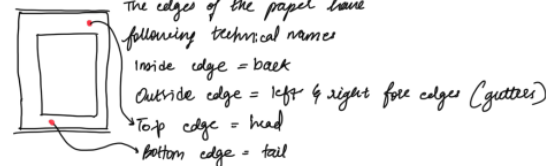 The edges of the paper have
following technical names
Inside edge = back
Outside edge = left & right fore edges (gutters)
Top edge = head
Bottom edge = tail